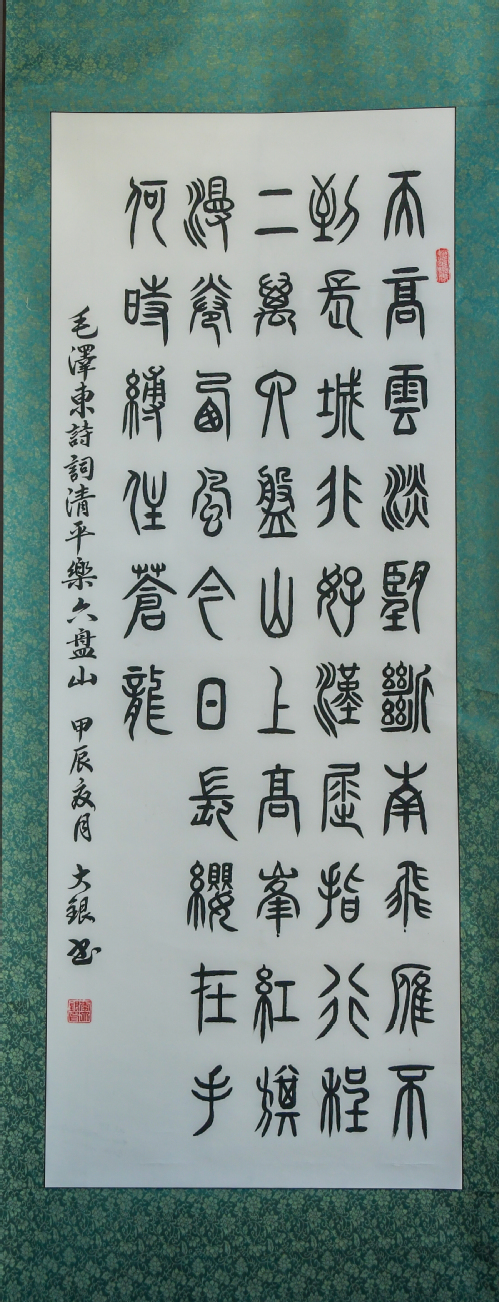 天高雲淡望斷南飛雁不
到長城非好漢屈指行程
二萬六盤山上高峯紅旗
漫卷西風今日長纓在手
何時縛住蒼龍
毛澤東詩詞清平樂六盘山 甲辰夏月 大銀书